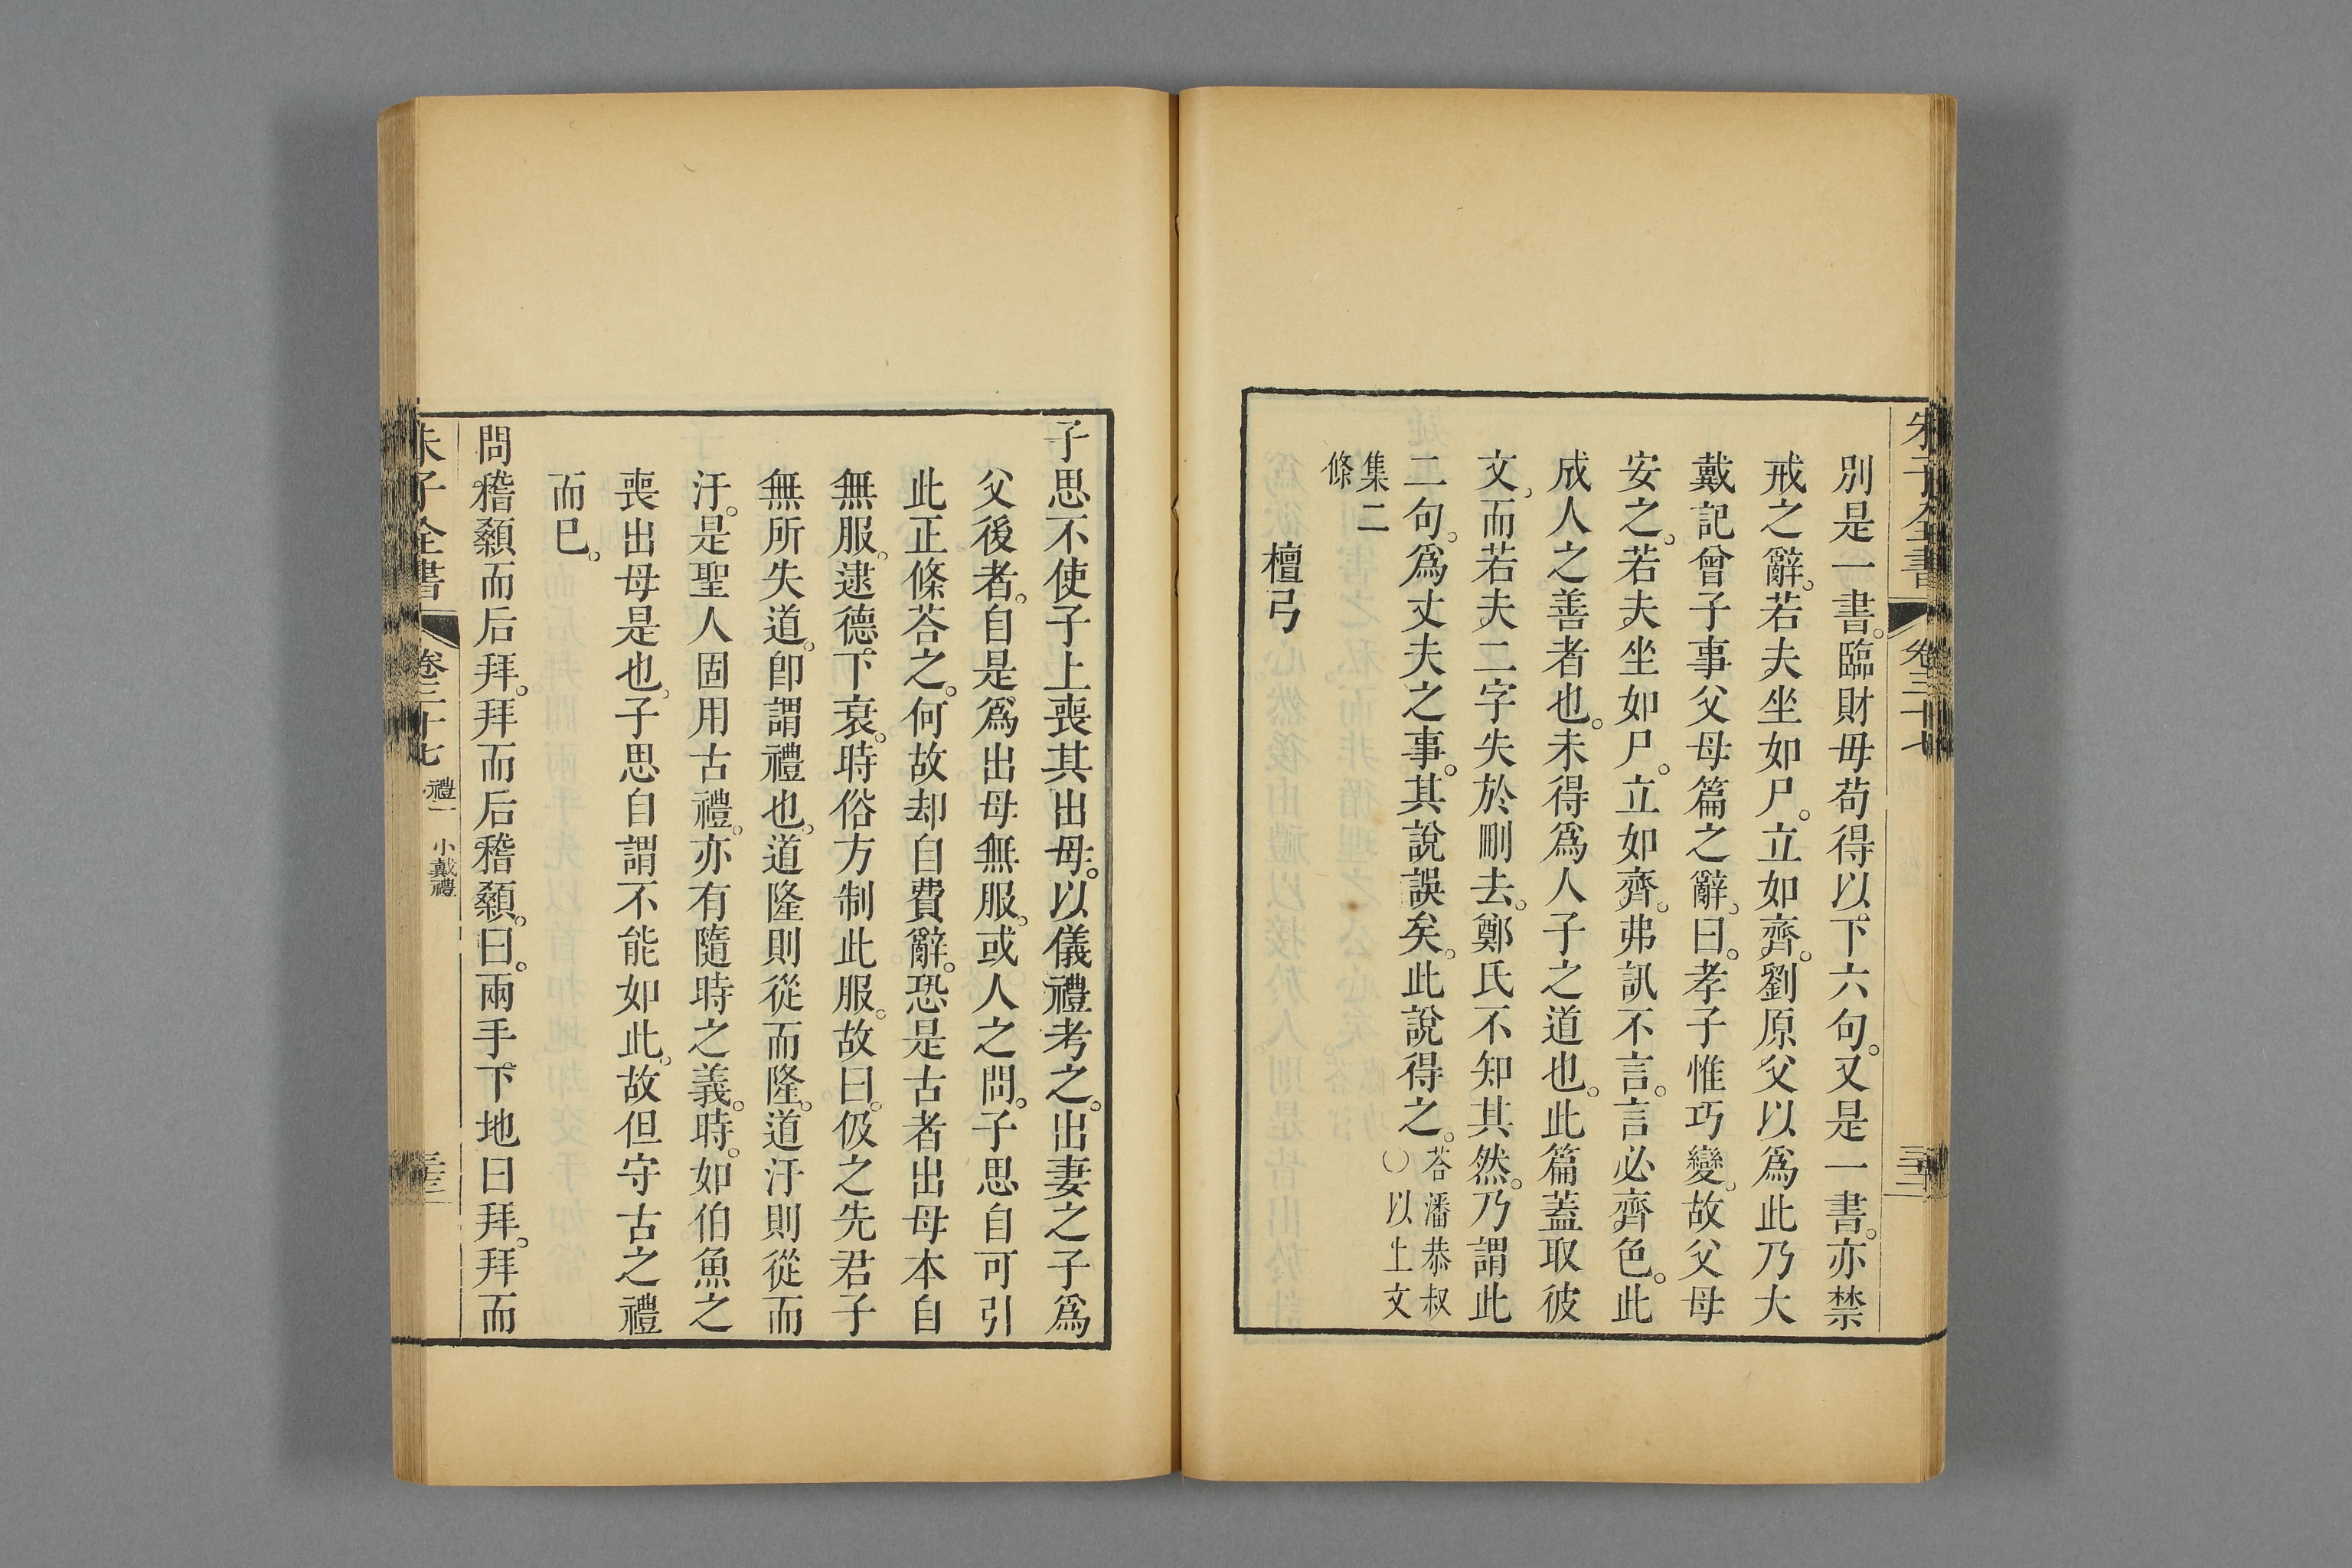 別是一書。臨財毋苟得以下六句。又是一書。亦禁
戒之辭。若夫坐如尸。立如齊。劉原父以爲此乃大
戴記曾子事父母篇之辭。曰。孝子惟巧變。故父母
安之。若夫坐如尸。立如齊。弗訊不言。言必齊色。此
成人之善者也。未得爲人子之道也。此篇蓋取彼
文。而若夫二字失於刪去。鄭氏不知其然。乃謂此
二句。爲丈夫之事。其說誤矣。此說得之。荅潘恭叔
〇以上文
集二
條
檀弓
子思不使子上喪其出母。以儀禮考之。出妻之子爲
父後者。自是爲出母無服。或人之問。子思自可引
此正條荅之。何故却自費辭。恐是古者出母本自
無服。逮德下衰。時俗方制此服。故曰。伋之先君子
無所失道。卽謂禮也。道隆則從而隆。道汙則從而
汙。是聖人固用古禮。亦有隨時之義。時。如伯魚之
喪出母是也。子思自謂不能如此。故但守古之禮
而已。
問稽顙而后拜。拜而后稽顙。曰。兩手下地曰拜。拜而
朱子全書 卷三十七 禮一 小戴禮